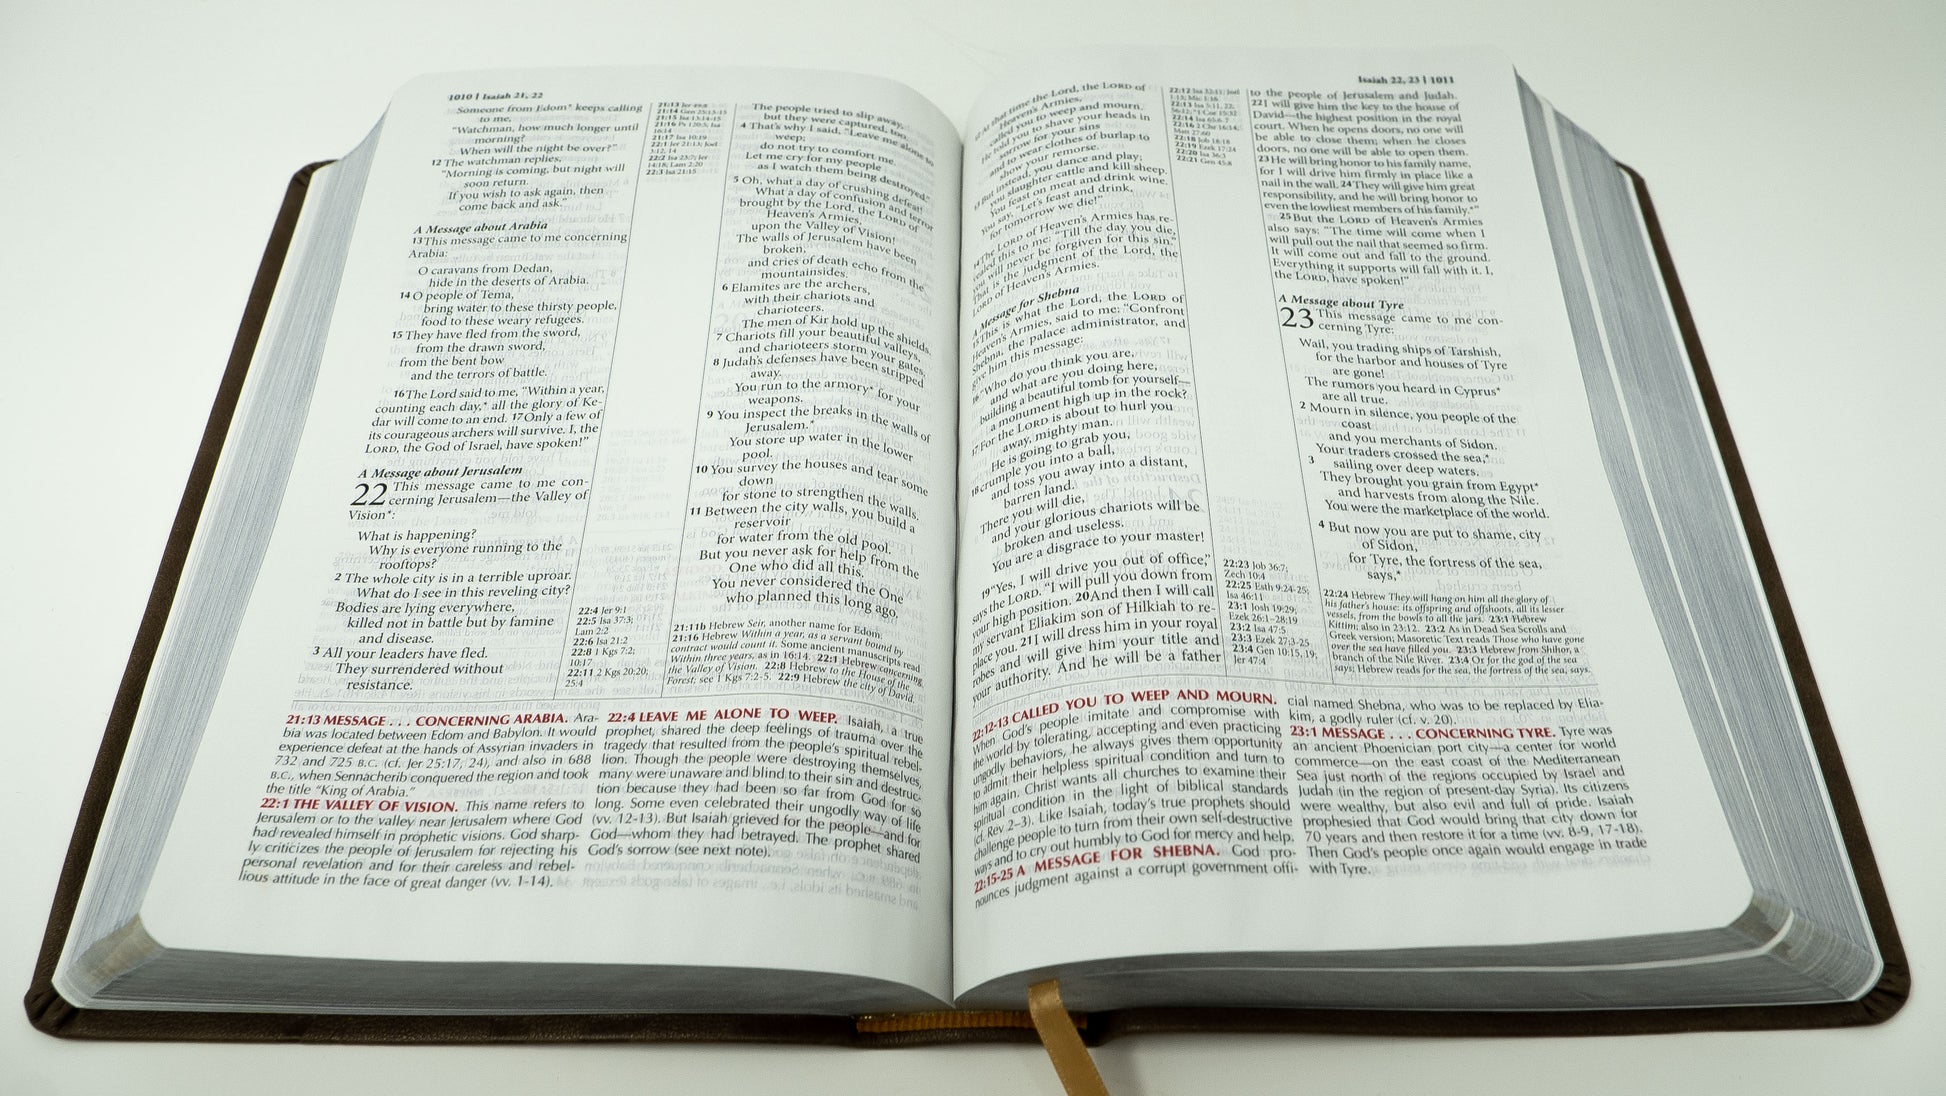 1010 | Isaiah 21, 22
Someone from Edom* keeps calling
to me,
"Watchman, how much longer until
morning?
When will the night be over?"
12 The watchman replies,
"Morning is coming, but night will
soon return.
If you wish to ask again, then
come back and ask."
A Message about Arabia
13 This message came to me concerning
Arabia:
O caravans from Dedan,
hide in the deserts of Arabia.
14 O people of Tema,
bring water to these thirsty people,
food to these weary refugees.
15 They have fled from the sword,
from the drawn sword,
from the bent bow
and the terrors of battle.
16 The Lord said to me, "Within a year,
counting each day,* all the glory of Ke-
dar will come to an end. 17 Only a few of
its courageous archers will survive. I, the
LORD, the God of Israel, have spoken!"
A Message about Jerusalem
22 This message came to me con-
cerning Jerusalem—the Valley of
Vision*:
What is happening?
Why is everyone running to the
rooftops?
2 The whole city is in a terrible uproar.
What do I see in this reveling city?
Bodies are lying everywhere,
killed not in battle but by famine
and disease.
3 All your leaders have fled.
They surrendered without
resistance.
21:13 Jer 49:8
21:14 Gen 25:13-15
21:15 Isa 13:14-15
21:16 Ps 120:5; Isa
16:14
21:17 Isa 10:19
22:1 Jer 21:13; Joel
3:12, 14
22:2 Isa 23:7; Jer
14:18; Lam 2:20
22:3 Isa 21:15
22:4 Jer 9:1
22:5 Isa 37:3;
Lam 2:2
22:6 Isa 21:2
22:8 1 Kgs 7:2;
10:17
22:11 2 Kgs 20:20;
25:4
The people tried to slip away,
but they were captured, too.
4 That's why I said, "Leave me alone to
weep;
do not try to comfort me.
Let me cry for my people
as I watch them being destroyed."
5 Oh, what a day of crushing defeat!
What a day of confusion and terror
brought by the Lord, the LORD of
Heaven's Armies,
upon the Valley of Vision!
The walls of Jerusalem have been
broken,
and cries of death echo from the
mountainsides.
6 Elamites are the archers,
with their chariots and
charioteers.
The men of Kir hold up the shields.
7 Chariots fill your beautiful valleys,
and charioteers storm your gates.
8 Judah's defenses have been stripped
away.
You run to the armory* for your
weapons.
9 You inspect the breaks in the walls of
Jerusalem.*
You store up water in the lower
pool.
10 You survey the houses and tear some
down
for stone to strengthen the walls.
11 Between the city walls, you build a
reservoir
for water from the old pool.
But you never ask for help from the
One who did all this.
You never considered the One
who planned this long ago.
21:11b Hebrew Seir, another name for Edom.
21:16 Hebrew Within a year, as a servant bound by
contract would count it. Some ancient manuscripts read
Within three years, as in 16:14. 22:1 Hebrew concerning
the Valley of Vision. 22:8 Hebrew to the House of the
Forest; see 1 Kgs 7:2-5. 22:9 Hebrew the city of David.
21:13 MESSAGE . . . CONCERNING ARABIA. Ara-
bia was located between Edom and Babylon. It would
experience defeat at the hands of Assyrian invaders in
732 and 725 B.C. (cf. Jer 25:17, 24), and also in 688
B.C., when Sennacherib conquered the region and took
the title "King of Arabia."
22:1 THE VALLEY OF VISION. This name refers to
Jerusalem or to the valley near Jerusalem where God
had revealed himself in prophetic visions. God sharp-
ly criticizes the people of Jerusalem for rejecting his
personal revelation and for their careless and rebel-
lious attitude in the face of great danger (vv. 1-14).
22:4 LEAVE ME ALONE TO WEEP. Isaiah, a true
prophet, shared the deep feelings of trauma over the
tragedy that resulted from the people's spiritual rebel-
lion. Though the people were destroying themselves,
many were unaware and blind to their sin and destruc-
tion because they had been so far from God for so
long. Some even celebrated their ungodly way of life
(vv. 12-13). But Isaiah grieved for the people—and for
God—whom they had betrayed. The prophet shared
God's sorrow (see next note).
Isaiah 22, 23 | 1011
12 At that time the Lord, the LORD of
Heaven's Armies,
called you to weep and mourn.
He told you to shave your heads in
sorrow for your sins
and to wear clothes of burlap to
show your remorse.
13 But instead, you dance and play;
you slaughter cattle and kill sheep.
You feast on meat and drink wine.
You say, "Let's feast and drink,
for tomorrow we die!"
14 The LORD of Heaven's Armies has re-
vealed this to me: "Till the day you die,
you will never be forgiven for this sin."
That is the judgment of the Lord, the
LORD of Heaven's Armies.
A Message for Shebna
15 This is what the Lord, the LORD of
Heaven's Armies, said to me: "Confront
Shebna, the palace administrator, and
give him this message:
16 "Who do you think you are,
and what are you doing here,
building a beautiful tomb for yourself—
a monument high up in the rock?
17 For the LORD is about to hurl you
away, mighty man.
He is going to grab you,
18 crumple you into a ball,
and toss you away into a distant,
barren land.
There you will die,
and your glorious chariots will be
broken and useless.
You are a disgrace to your master!
19 "Yes, I will drive you out of office,"
says the LORD. "I will pull you down from
your high position. 20 And then I will call
my servant Eliakim son of Hilkiah to re-
place you. 21 I will dress him in your royal
robes and will give him your title and
your authority. And he will be a father
22:12 Isa 32:11; Joel
1:13; Mic 1:16
22:13 Isa 5:11, 22;
56:12; *1 Cor 15:32
22:14 Isa 65:6-7
22:16 2 Chr 16:14;
Matt 27:60
22:18 Job 18:18
22:19 Ezek 17:24
22:20 Isa 36:3
22:21 Gen 45:8
22:23 Job 36:7;
Zech 10:4
22:25 Esth 9:24-25;
Isa 46:11
23:1 Josh 19:29;
Ezek 26:1–28:19
23:2 Isa 47:5
23:3 Ezek 27:3-25
23:4 Gen 10:15, 19;
Jer 47:4
to the people of Jerusalem and Judah.
22 I will give him the key to the house of
David—the highest position in the royal
court. When he opens doors, no one will
be able to close them; when he closes
doors, no one will be able to open them.
23 He will bring honor to his family name,
for I will drive him firmly in place like a
nail in the wall. 24 They will give him great
responsibility, and he will bring honor to
even the lowliest members of his family.*"
25 But the LORD of Heaven's Armies
also says: "The time will come when I
will pull out the nail that seemed so firm.
It will come out and fall to the ground.
Everything it supports will fall with it. I,
the LORD, have spoken!"
A Message about Tyre
23 This message came to me con-
cerning Tyre:
Wail, you trading ships of Tarshish,
for the harbor and houses of Tyre
are gone!
The rumors you heard in Cyprus*
are all true.
2 Mourn in silence, you people of the
coast
and you merchants of Sidon.
Your traders crossed the sea,*
3 sailing over deep waters.
They brought you grain from Egypt*
and harvests from along the Nile.
You were the marketplace of the world.
4 But now you are put to shame, city
of Sidon,
for Tyre, the fortress of the sea,
says,*
22:24 Hebrew They will hang on him all the glory of
his father's house: its offspring and offshoots, all its lesser
vessels, from the bowls to all the jars. 23:1 Hebrew
Kittim; also in 23:12. 23:2 As in Dead Sea Scrolls and
Greek version; Masoretic Text reads Those who have gone
over the sea have filled you. 23:3 Hebrew from Shihor, a
branch of the Nile River. 23:4 Or for the god of the sea
says; Hebrew reads for the sea, the fortress of the sea, says.
22:12-13 CALLED YOU TO WEEP AND MOURN.
When God's people imitate and compromise with
the world by tolerating, accepting and even practicing
ungodly behaviors, he always gives them opportunity
to admit their helpless spiritual condition and turn to
him again. Christ wants all churches to examine their
spiritual condition in the light of biblical standards
(cf. Rev 2–3). Like Isaiah, today's true prophets should
challenge people to turn from their own self-destructive
ways and to cry out humbly to God for mercy and help.
22:15-25 A MESSAGE FOR SHEBNA. God pro-
nounces judgment against a corrupt government offi-
cial named Shebna, who was to be replaced by Elia-
kim, a godly ruler (cf. v. 20).
23:1 MESSAGE . . . CONCERNING TYRE. Tyre was
an ancient Phoenician port city—a center for world
commerce—on the east coast of the Mediterranean
Sea just north of the regions occupied by Israel and
Judah (in the region of present-day Syria). Its citizens
were wealthy, but also evil and full of pride. Isaiah
prophesied that God would bring that city down for
70 years and then restore it for a time (vv. 8-9, 17-18).
Then God's people once again would engage in trade
with Tyre.